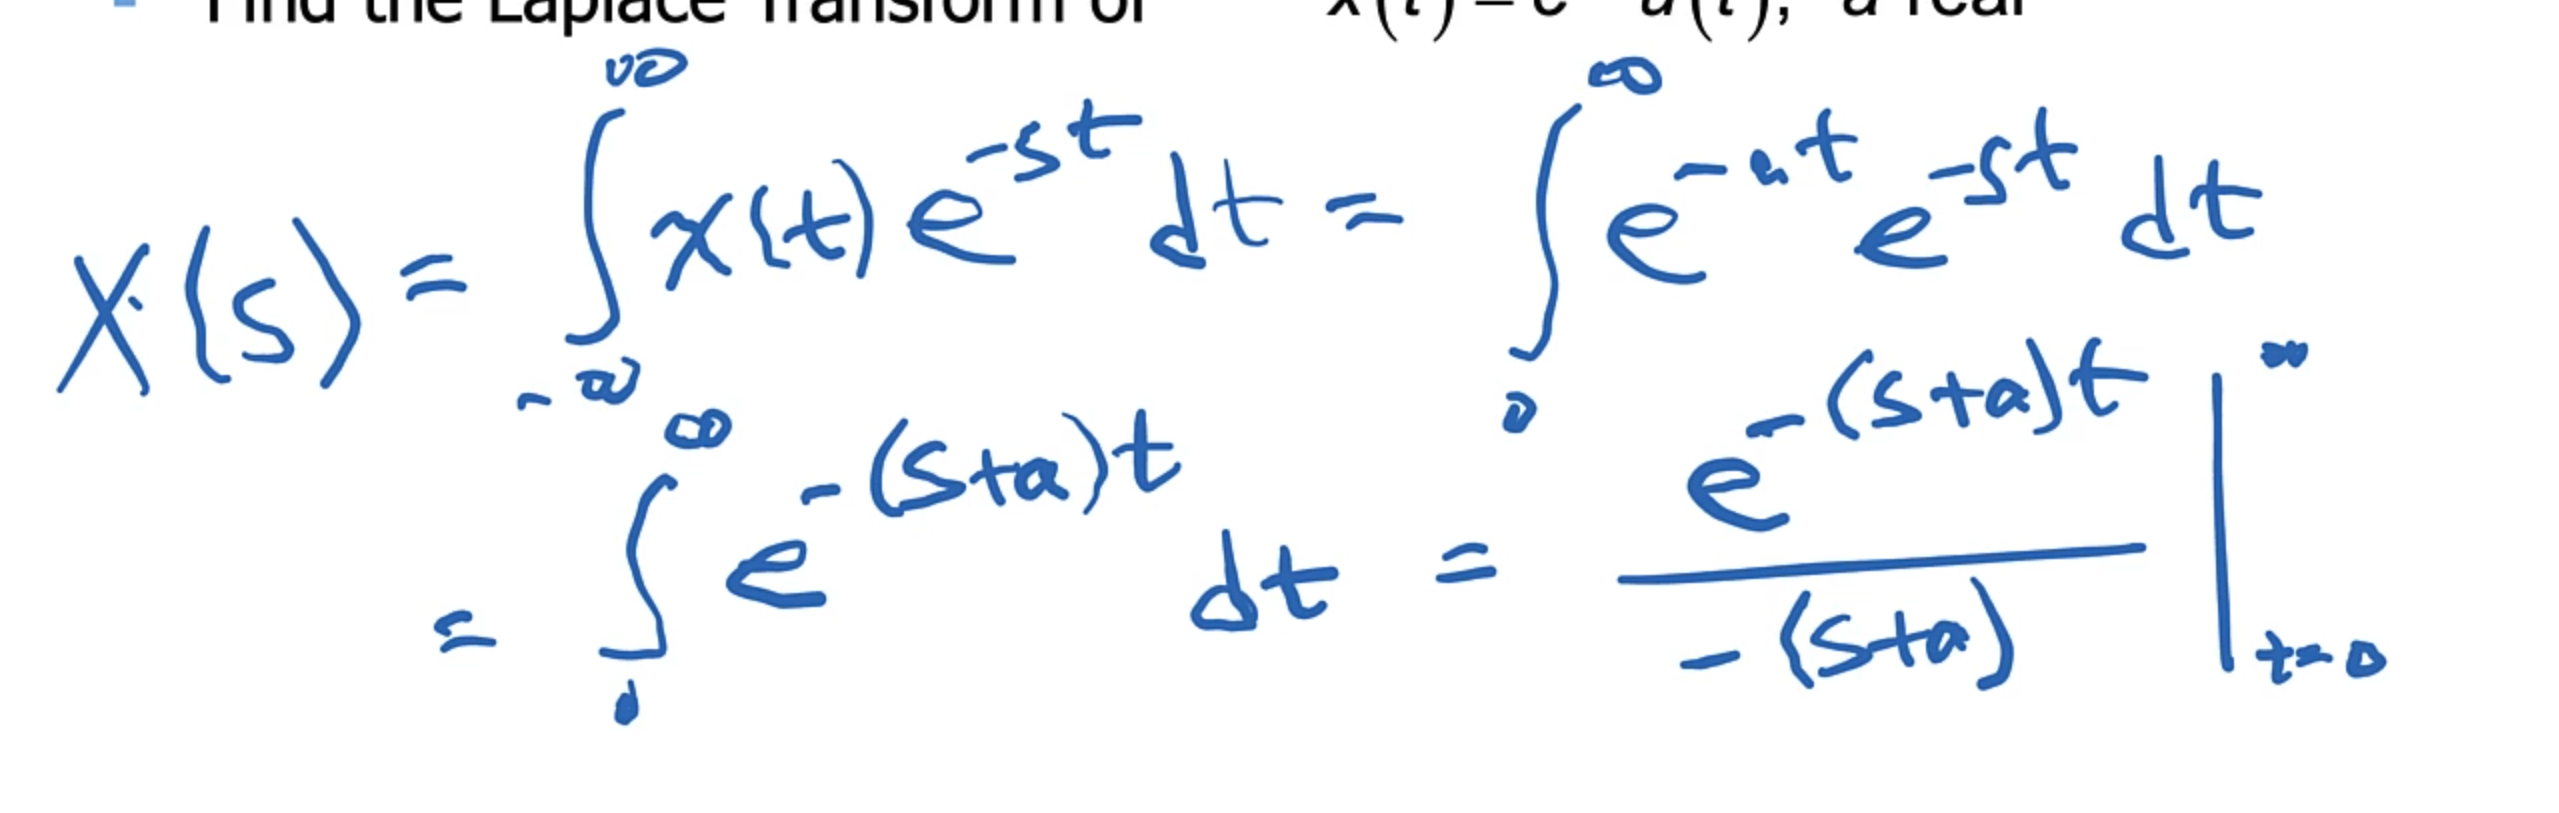 Find the Laplace Transform of x(t) = e u(t), a real
X(s) = ∫_{-∞}^{∞} x(t) e^{-st} dt = ∫_{0}^{∞} e^{-at} e^{-st} dt
= ∫_{0}^{∞} e^{-(s+a)t} dt = \frac{e^{-(s+a)t}}{-(s+a)} |_{t=0}^{∞}